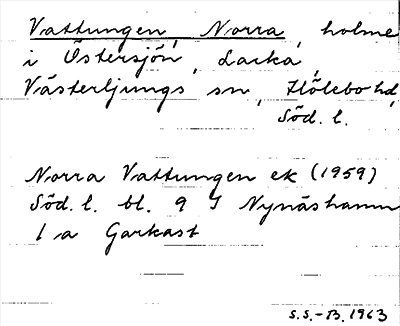 Vattungen, Norra, holme
i Östersjön, Larka,
Västerljungs sn, Hölebo hd,
Söd. l.
Norra Vattungen ek (1959)
Söd. l. bl. 9 I Nynäshamn
1 a Garkast
S.S.-B. 1963